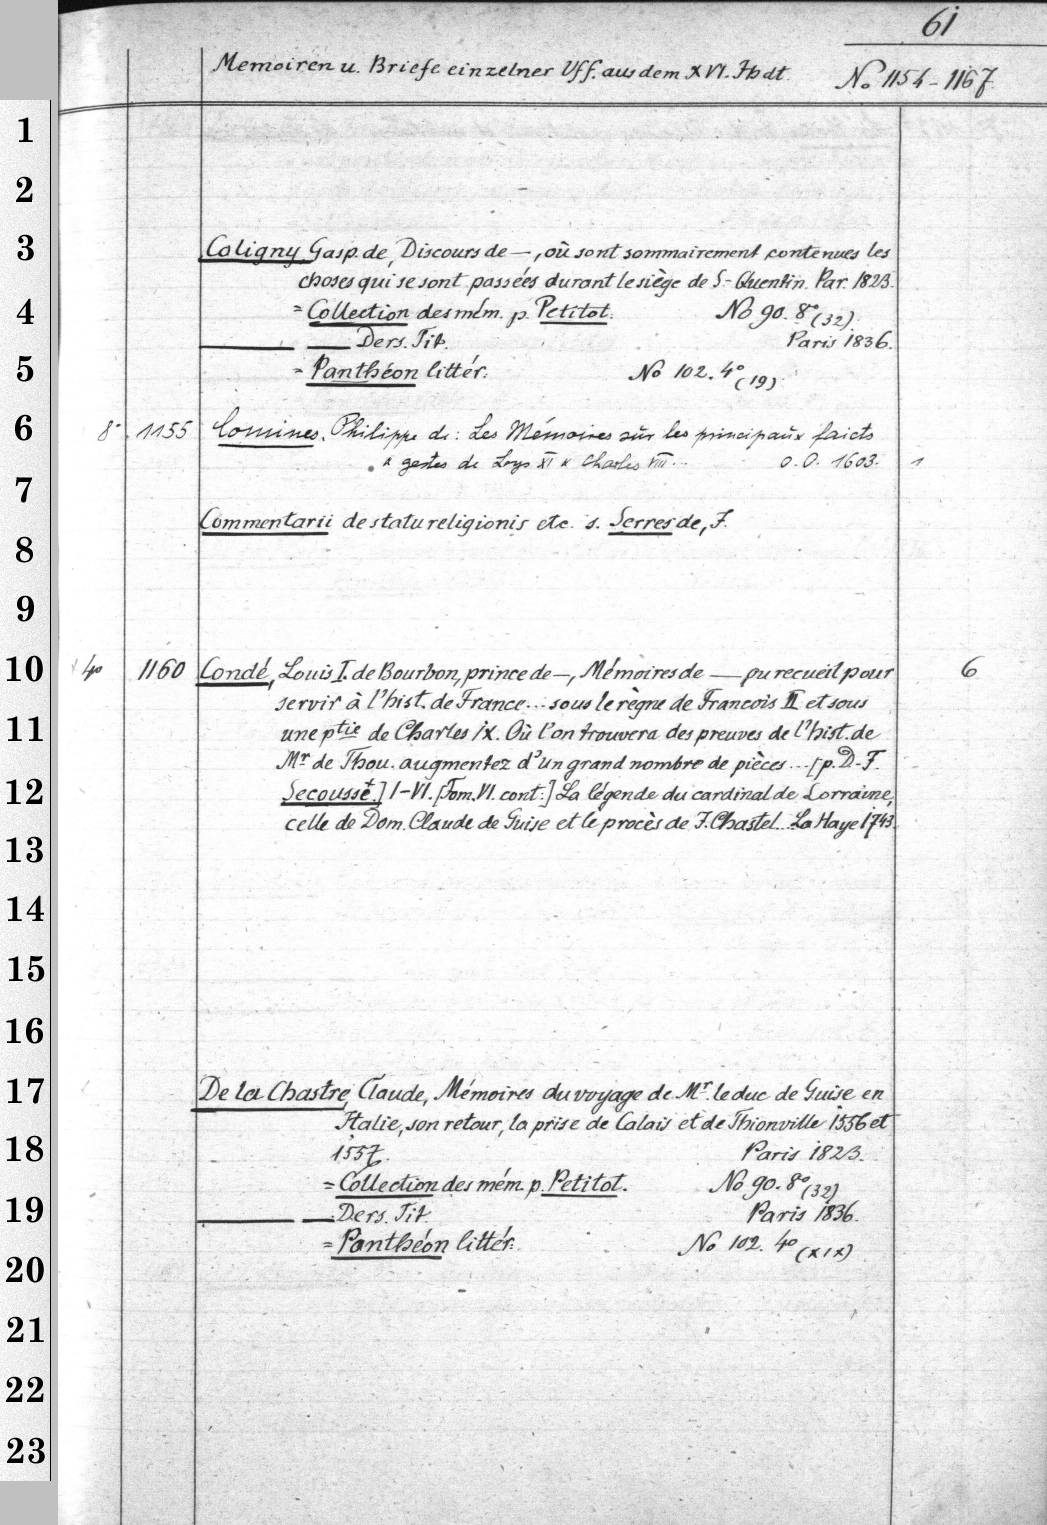 61
Memoiren u. Briefe einzelner Vff. aus dem XVI. Jhdt.
No 1154-1167
1
2
3
Coligny Gasp. de, Discours de —, où sont sommairement contenues les
choses qui se sont passées durant le siège de S-Quentin. Par. 1823.
4
= Collection des mém. p. Petitot. No 90. 8° (32).
—— — Ders. Tit. Paris 1836.
5
= Panthéon littér. No 102. 4° (19)
6
8° 1155 Comines, Philippe de: Les Mémoires sur les principaux faicts
& gestes de Loys XI & Charles VIII... o. O. 1603. 1
7
Commentarii de statu religionis etc. s. Serres de, J.
8
9
10
4° 1160 Condé, Louis I. de Bourbon, prince de —, Mémoires de — ou recueil pour 6
servir à l'hist. de France... sous le règne de Francois II et sous
11
une ptie de Charles IX. Où l'on trouvera des preuves de l'hist. de
Mr de Thou. augmentez d'un grand nombre de pièces... [p. D-F.
12
Secousse.] I-VI. [Tom. VI. cont:] La légende du cardinal de Lorraine,
celle de Dom. Claude de Guise et le procès de J. Chastel... La Haye 1743
13
14
15
16
17
De la Chastre, Claude, Mémoires du voyage de Mr. le duc de Guise en
Italie, son retour, la prise de Calais et de Thionville 1556 et
18
1557. Paris 1823.
= Collection des mém. p. Petitot. No 90. 8° (32)
19
—— — Ders. Tit. Paris 1836.
= Panthéon littér. No 102. 4° (XIX)
20
21
22
23